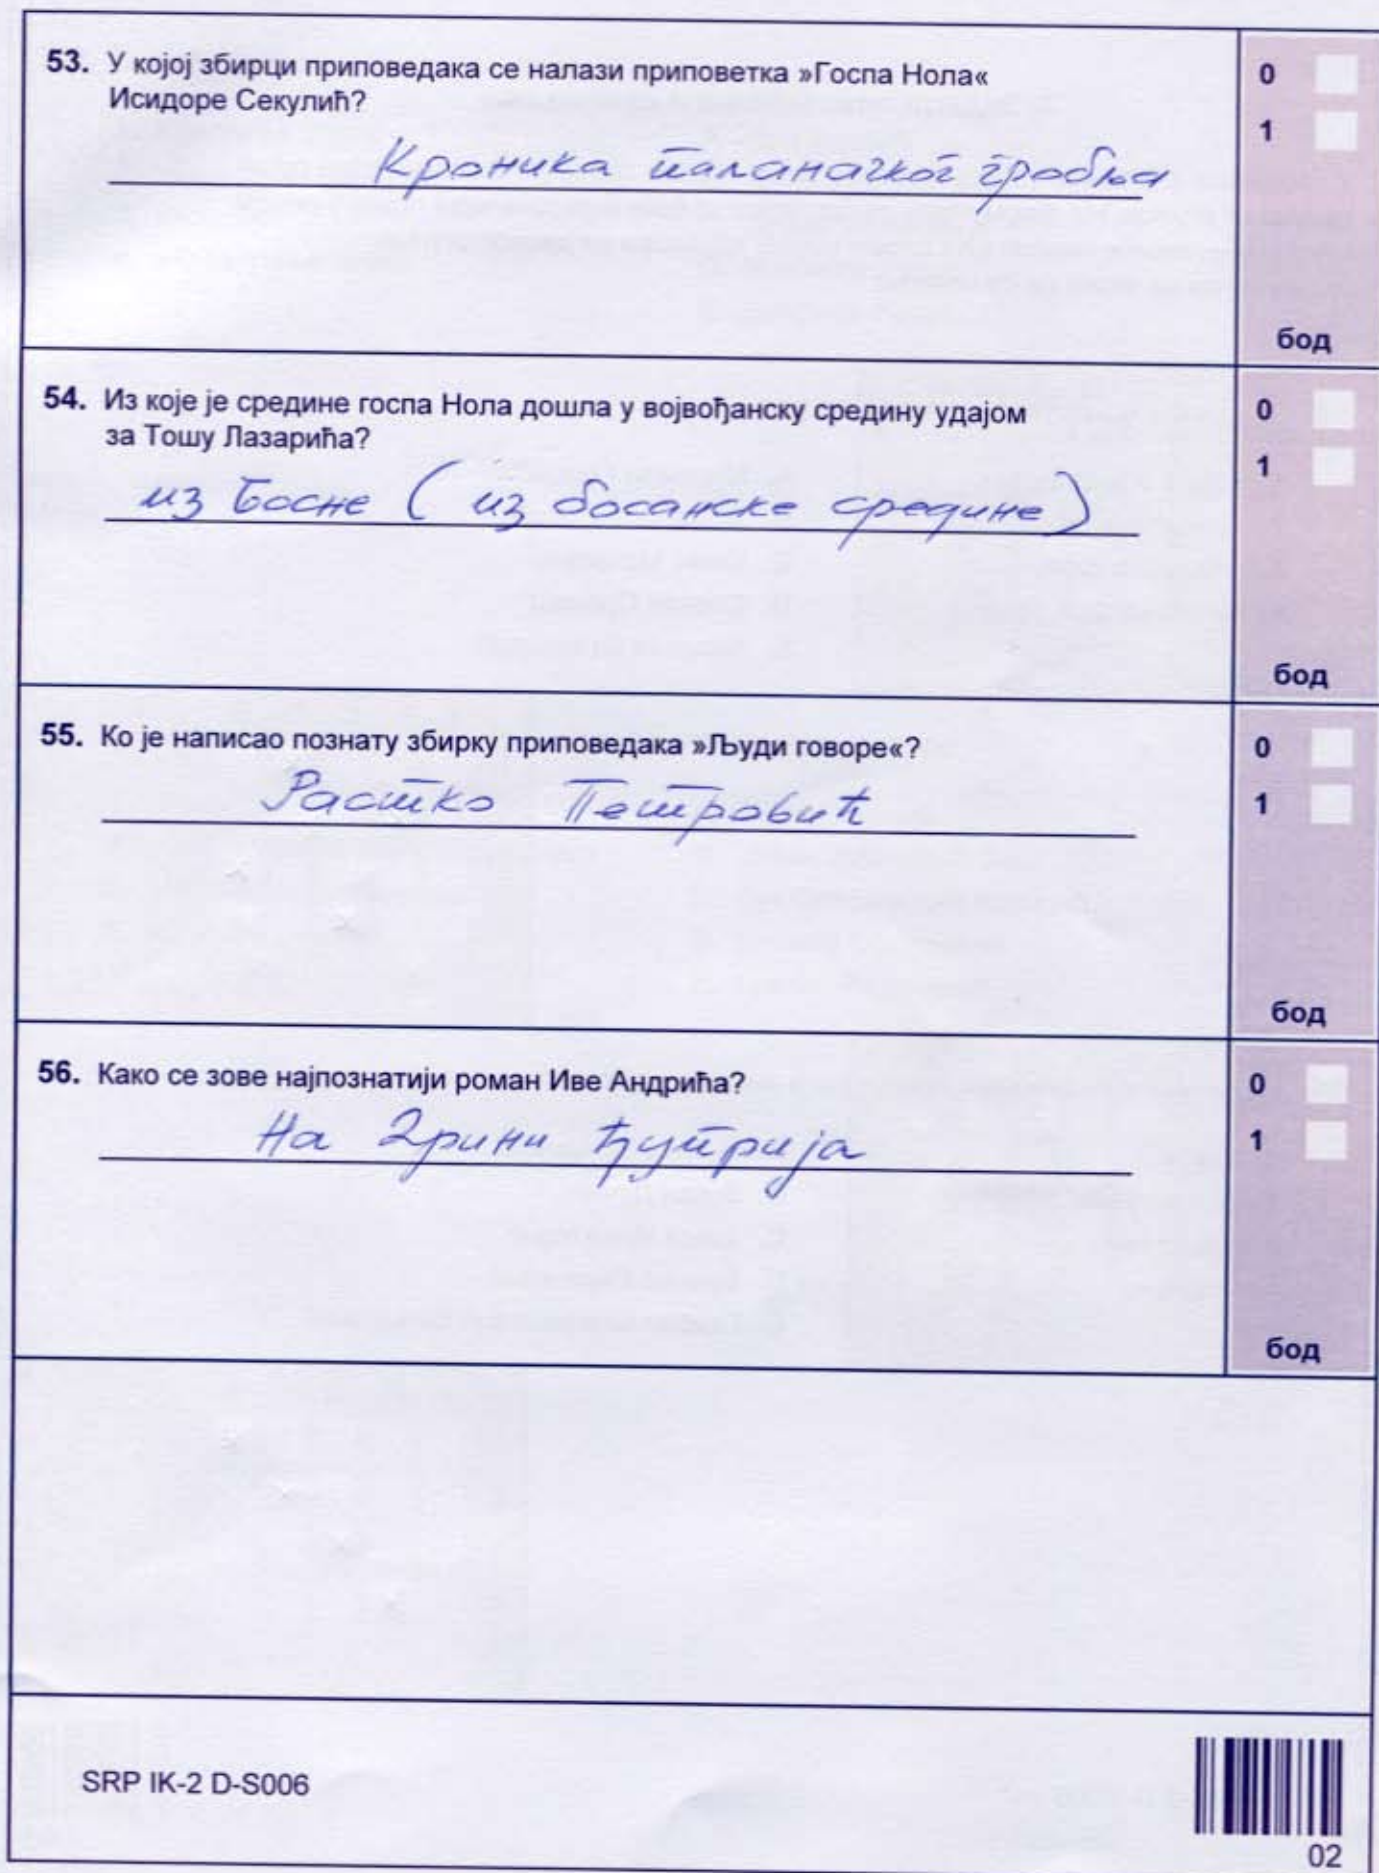 53. У којој збирци приповедака се налази приповетка »Госпа Нола«
Исидоре Секулић?
Кроника паланачког гробља
0
1
бод
54. Из које је средине госпа Нола дошла у војвођанску средину удајом
за Тошу Лазарића?
из Босне ( из босанске средине)
0
1
бод
55. Ко је написао познату збирку приповедака »Људи говоре«?
Растко Петровић
0
1
бод
56. Како се зове најпознатији роман Иве Андрића?
На Дрини ћуприја
0
1
бод
SRP IK-2 D-S006
02